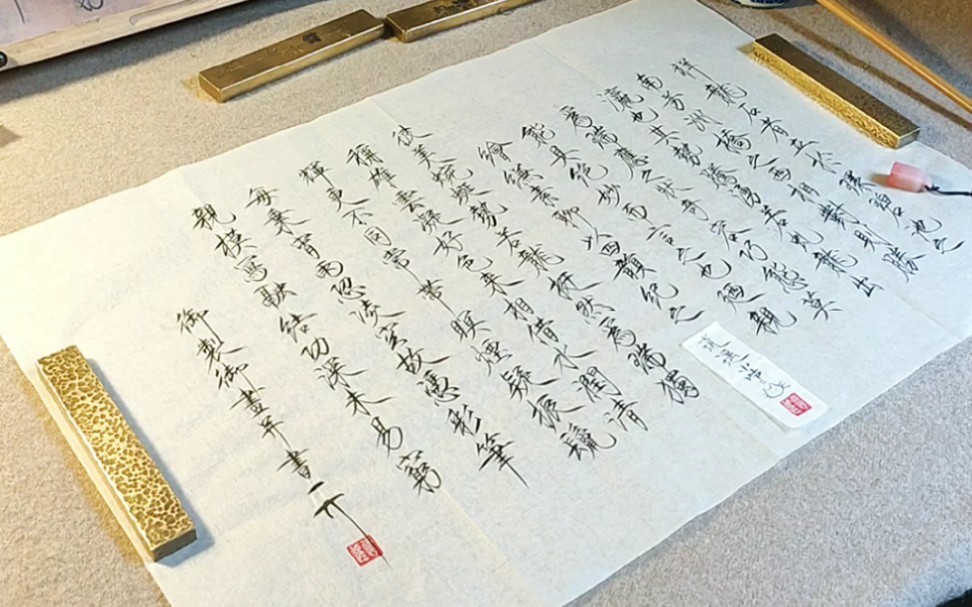 祥龍石者立於環碧池之
南芳洲橋之西相對則勝
瀛也其勢騰湧若虬龍出
為瑞應之狀奇容巧態莫
能具絕妙而言之也廼親
繪縑素聊以四韻紀之
彼美蜿蜒勢若龍挺然為瑞獨
稱雄雲凝好色來相借水潤清
輝更不同常帶暝煙疑振鬣
每乘宵雨恐凌空故憑彩筆
親模寫融結功深未易窮
御製御畫并書